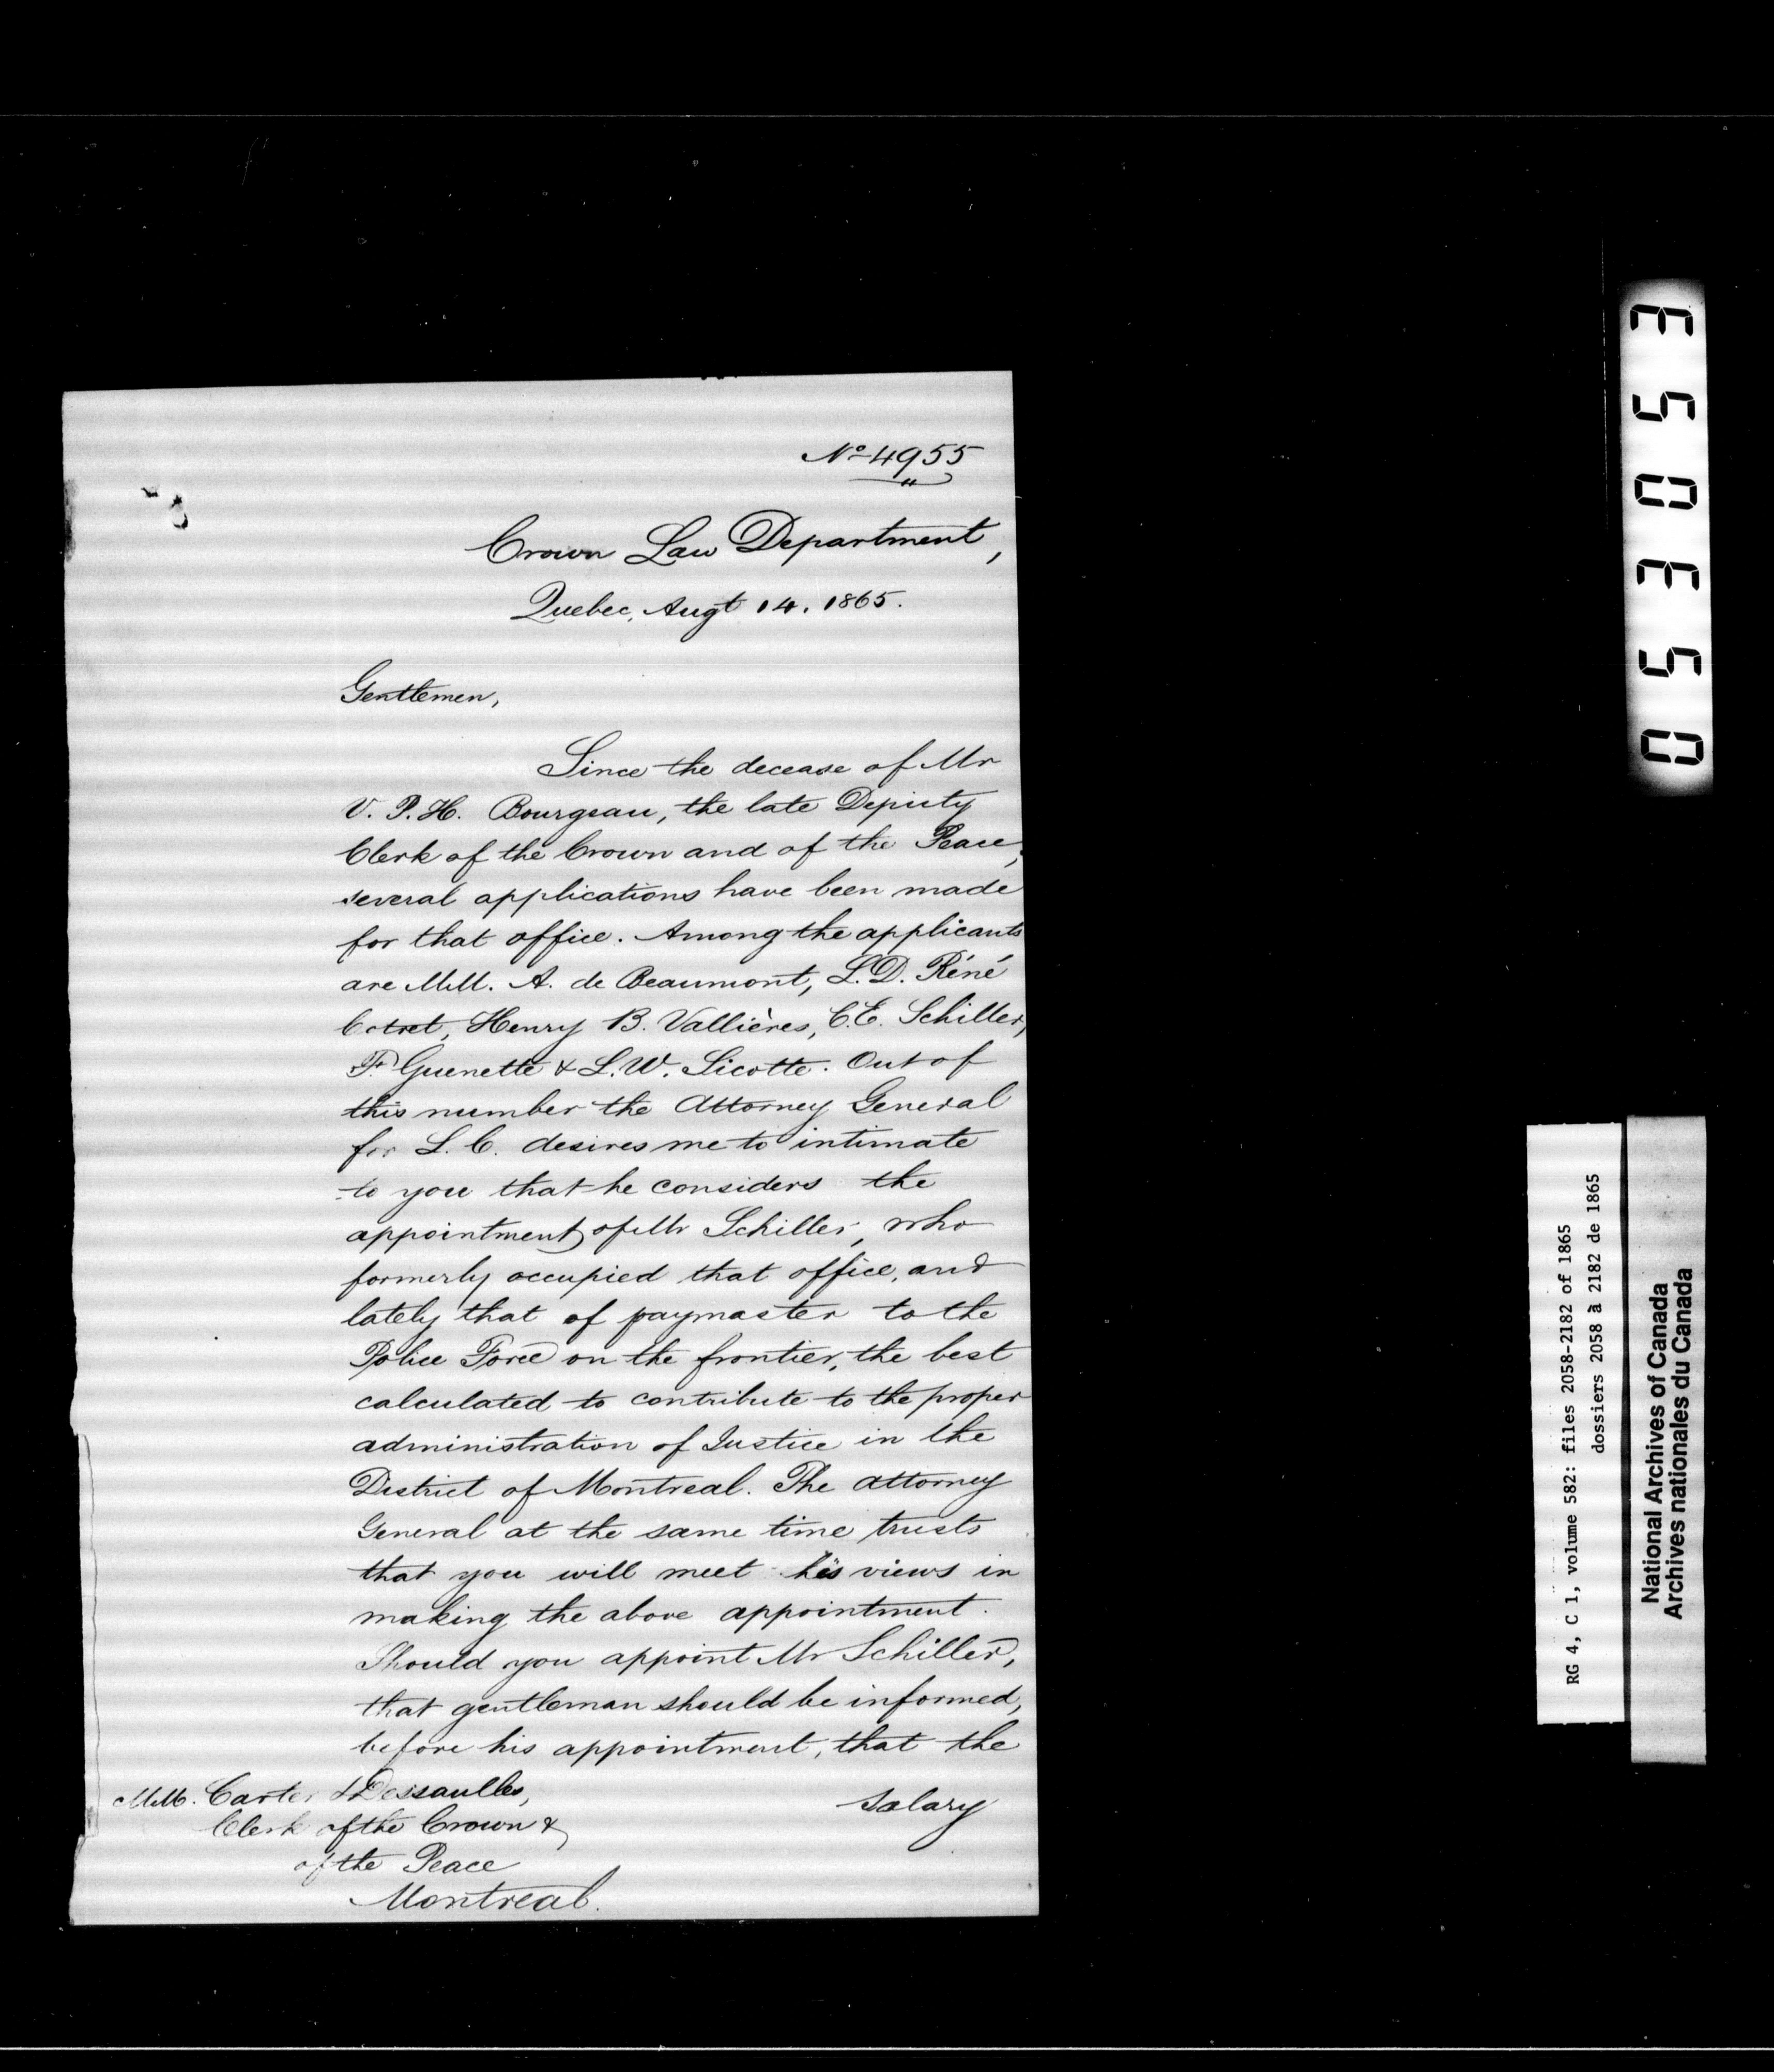 No 4955
Crown Law Department,
Quebec, Augt 14. 1865.
Gentlemen,
Since the decease of Mr
V. P. H. Bourgeau, the late Deputy
Clerk of the Crown and of the Peace,
several applications have been made
for that office. Among the applicants
are MM. A. de Beaumont, L. D. Réné
Cotret, Henry B. Vallières, C. E. Schiller,
F. Guenette & L. W. Sicotte. Out of
this number the Attorney General
for L. C. desires me to intimate
to you that he considers the
appointment of Mr Schiller, who
formerly occupied that office, and
lately that of paymaster to the
Police Force on the frontier, the best
calculated to contribute to the proper
administration of Justice in the
District of Montreal. The Attorney
General at the same time trusts
that you will meet his views in
making the above appointment.
Should you appoint Mr Schiller,
that gentleman should be informed,
before his appointment, that the
salary
MM. Carter & Dessaulles,
Clerk of the Crown &
of the Peace
Montreal.
E50E50
RG 4, C 1, volume 582: files 2058-2182 of 1865
dossiers 2058 à 2182 de 1865
National Archives of Canada
Archives nationales du Canada